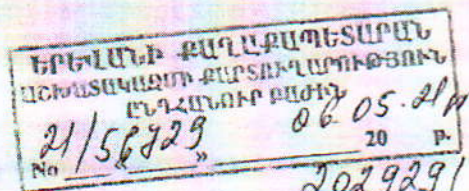 ԵՐԵՎԱՆԻ ՔԱՂԱՔԱՊԵՏԱՐԱՆ
ԱՇԽԱՏԱԿԱԶՄԻ ՔԱՐՏՈՒՂԱՐՈՒԹՅՈՒՆ
ԸՆԴՀԱՆՈՒՐ ԲԱԺԻՆ
21/56729 06.05.21
No « » 20 թ.
2029291